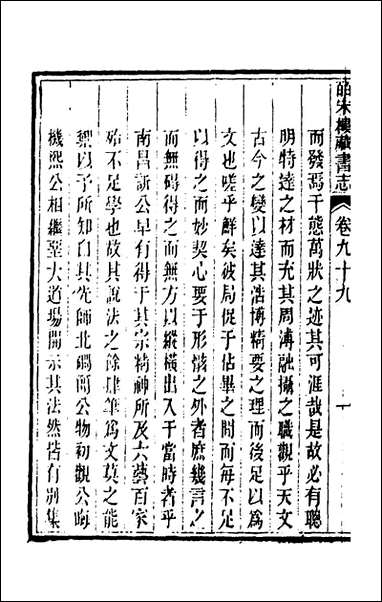 皕宋樓藏書志 卷九十九 一
而發焉千態萬狀之迹其可涯哉是故必有聰
明特達之材而充其周溥融攝之職觀乎天文
古今之變以達其浩博精要之理而後足以爲
文也嗟乎鮮矣彼局促于佔畢之間而每不足
以得之而妙契心要于形骸之外者庶幾言之
而無碍得之而無方以縱橫出入于當時者乎
南昌訢公早有得于其宗精神所及六藝百家
殆不足學也故其說法之餘肆筆爲文莫之能
禦以予所知自其先師北磵簡公物初觀公晦
機熙公相繼坐大道場開示其法然皆有别集